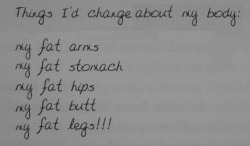 Things I'd change about my body:
my fat arms
my fat stomach
my fat hips
my fat butt
my fat legs!!!